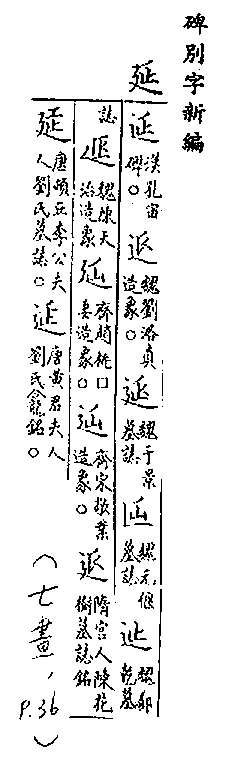 碑別字新編
延
延漢孔宙碑○延魏劉洛真造象○延魏于景墓誌延魏元偃墓誌延魏郭乾墓
誌延魏陳天造象延齊門○妻造象○延齊宋敬業造象○延隋宮人陳花樹墓誌銘
延唐頓丘李公夫人劉氏墓誌○延唐黃君夫人劉氏龕銘○
(七畫,P.36)